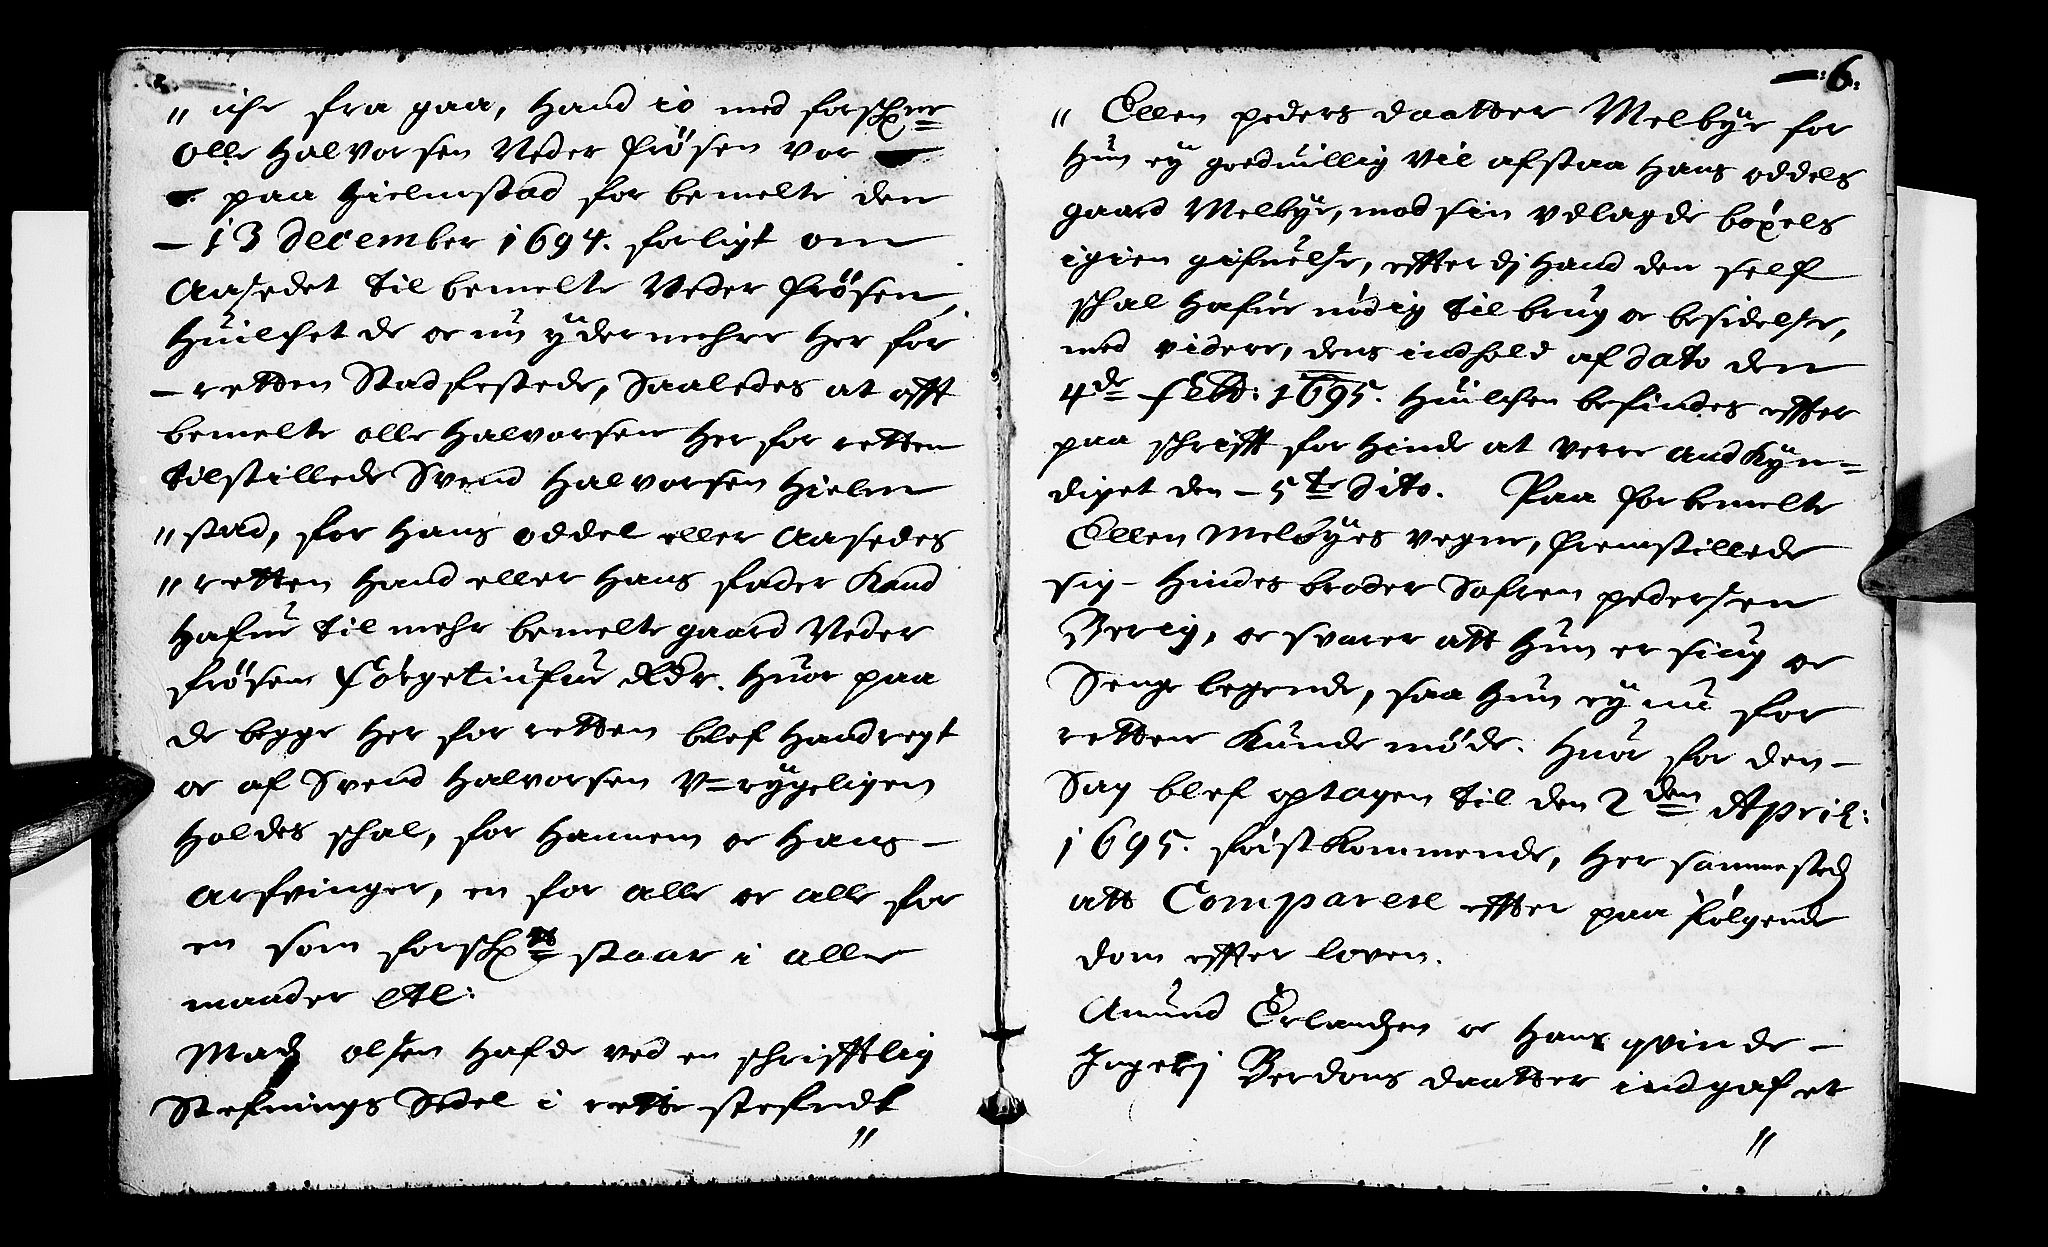 " iche fra gaa, Hand io med forsch:ne
Olle Halvorsen Neder Frösen vor
paa Hielmstad for bemelte den
- 13 december 1694. forligt om
Aasedet til bemelte Neder Frösen,
Huilchet de oc nu ÿdermehre her for
- retten Stadfestede, Saaledes at afft
bemelte olle Halvorsen her for retten
tilstillede Svend Halvorsen Hielm
" stad, for Hans oddel eller Aasedes
" retten Hand eller Hans fader Kand
Hafue til mehr bemelte gaard Neder
frösen förgetiufue Rdr. Huor paa
de begge her for retten blef Handregt
oc af Svend Halvorsen V=rÿgeligen
Holdes schal, for Hannem oc Hans -
Arfvinger, en for alle oc alle for
en som forsch:t staar i alle
maader etc:
Madz olsen Hafde ved en schrifftlig
Stefnings Sedel i rette stefndt
"
-: 6:
" Ellen peders daatter Melbÿe for
Hun eÿ goeduillig vil afstaa Hans oddels
gaard Melbÿe, mod sin vdlagde böxels
igien gifuelse, effterdj Hand den self
schal Hafue nödig til brug oc besidelse,
med videre, dens indhold af dato den
4de febr: 1695. Huilchen befindes effter
paa schrifft for Hinde at verre andkÿn=
diget den - 5te dito. Paa forbemelte
Ellen Melbÿes vegne, fremstillede
sig - Hindes broder Safren pedersen
Berig, oc svarer att Hun er siug oc
Senge legende, saa Hun eÿ nu for
retten Kunde möde. Huor for den -
Sag blef optagen til den 2den April:
1695. föistkommende, Her sammestedz
att Comparere effter paa fölgende
dom effter loven.
Amund Erlandzen oc Hans qvinde -
Ingerj Berdons daatter indgaf et
"